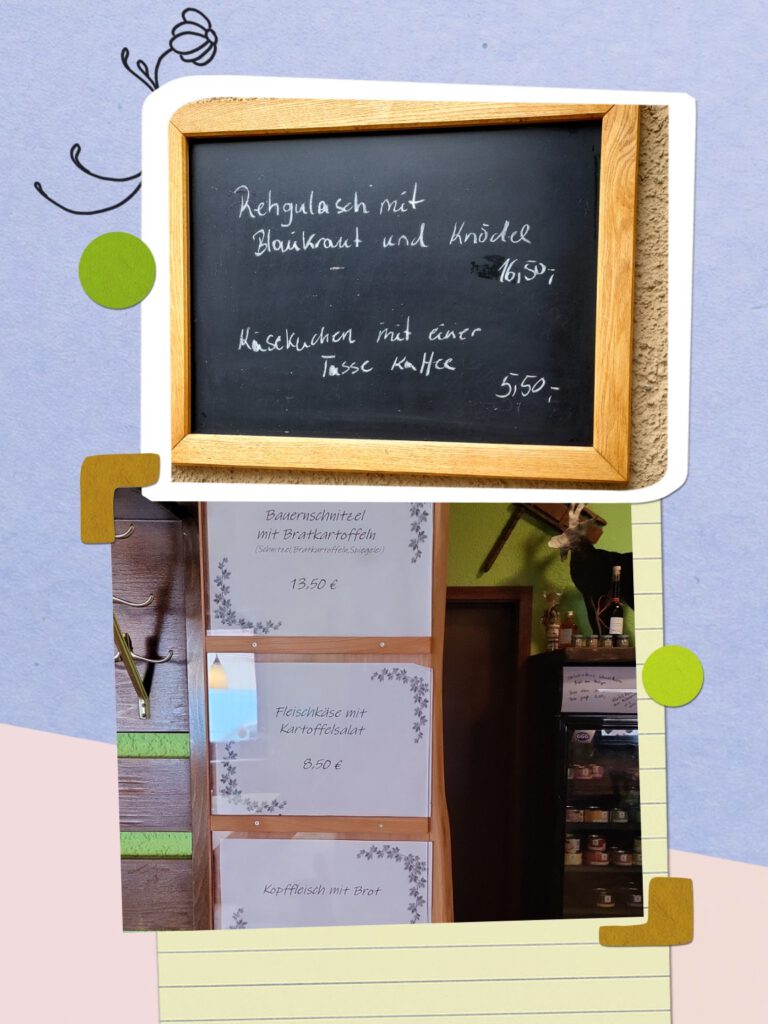 Rehgulasch mit
Blaukraut und Knödel
16,50,-
Käsekuchen mit einer
Tasse Kaffee
5,50,-
Bauernschnitzel
mit Bratkartoffeln
(Schnitzel,Bratkartoffeln,Spiegelei)
13,50 €
Fleischkäse mit
Kartoffelsalat
8,50 €
Kopffleisch mit Brot
GGG